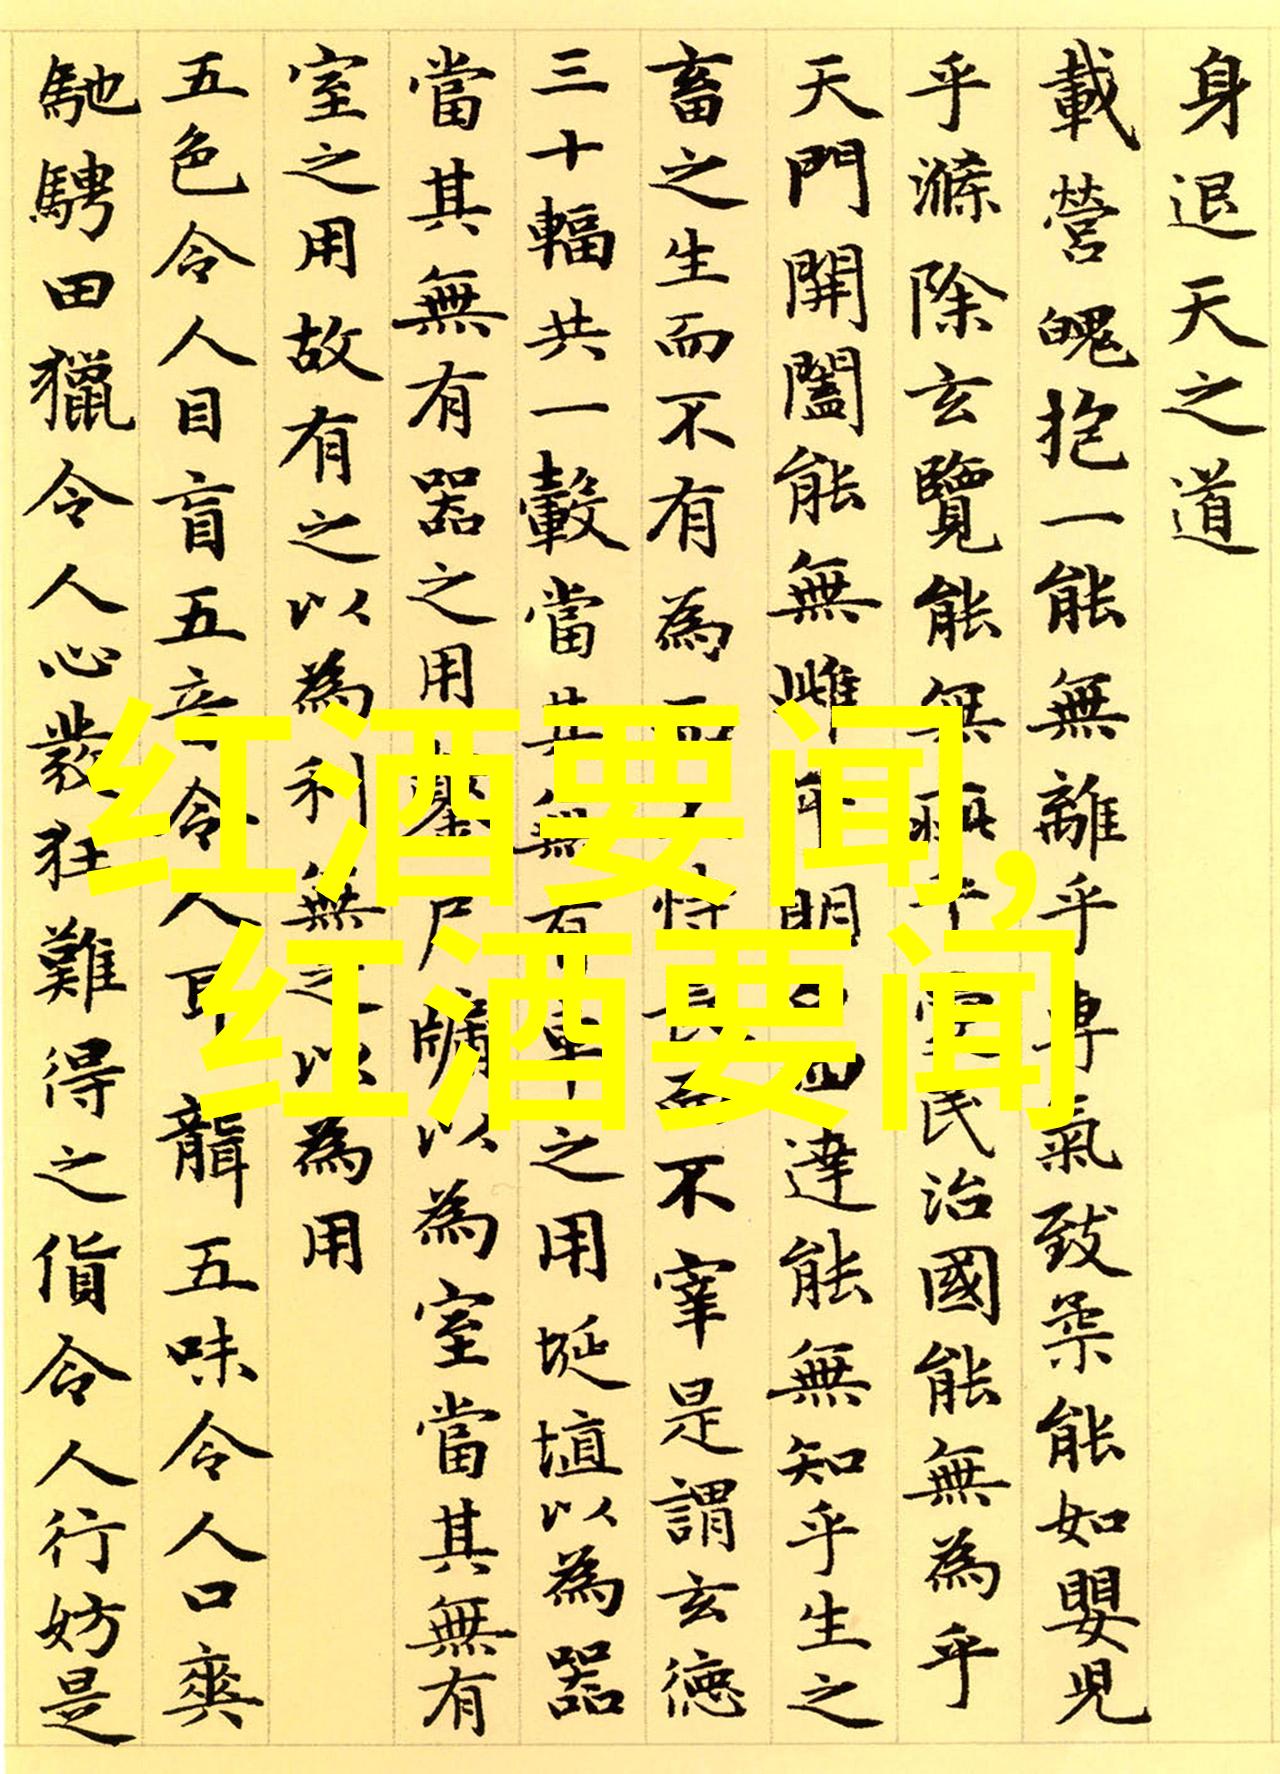 身退天之道
載營魄抱一能無離乎專氣致柔能如嬰兒
乎滌除玄覽能無疵乎愛民治國能無為乎
天門開闔能無雌乎明白四達能無知乎生之
畜之生而不有為而不恃長而不宰是謂玄德
三十輻共一轂當其無有車之用埏埴以為器
當其無有器之用鑿戶牖以為室當其無有
室之用故有之以為利無之以為用
五色令人目盲五音令人耳聾五味令人口爽
馳騁田獵令人心發狂難得之貨令人行妨是
红酒要闻,
红酒要闻